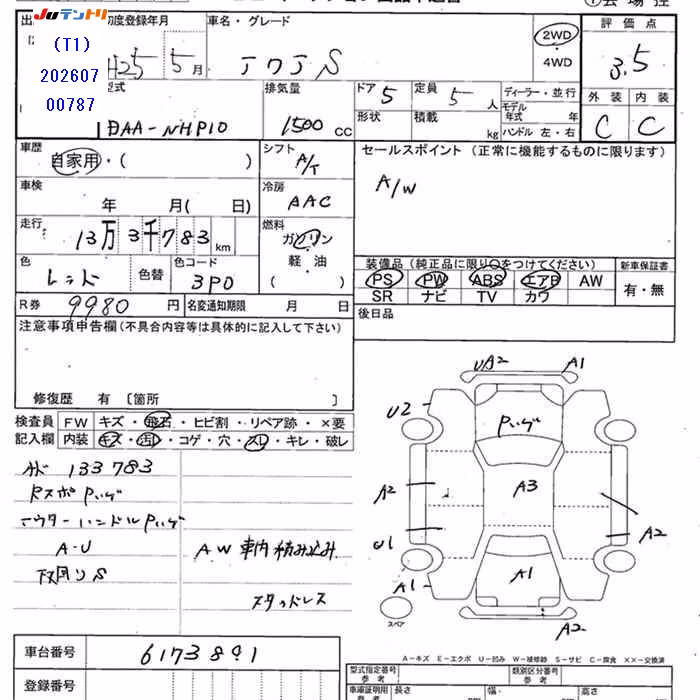 JUテントリ
(T1)
202607
00787
初度登録年月
車名・グレード
評価点
H25 5月
アクアS
2WD
・
4WD
3.5
型式
排気量
ドア 5
定員 5人
ディーラー・並行
外装
内装
DAA-NHP10
1500 CC
形状
積載 kg
モデル年式 年
ハンドル 左・右
C
C
車歴
自家用・( )
シフト
A/T
セールスポイント (正常に機能するものに限ります)
A/W
車検
年 月( 日)
冷房
AAC
走行
13万3千783km
燃料
ガソリン
軽・油
( )
色
レッド
色替
色コード
3P0
装備品(純正品に限り○をつけてください)
新車保証書
PS PW ABS エアB AW
SR ナビ TV カワ
有・無
R券 9980円
名変通知期限 月 日
後日品
注意事項申告欄(不具合内容等は具体的に記入して下さい)
修復歴 有 〔箇所 〕
検査員
記入欄
FW キズ・飛石・ヒビ割・リペア跡・×要
内装 キズ・汚レ・コゲ・穴・スレ・キレ・破レ
133783
RスポPハゲ
アウターハンドルPハゲ
A-U
下回りS
AW 車内積み込み
スタッドレス
UA2
A1
U2
Pハゲ
A2
A3
U1
A2
A1
A1
スペア
A2
車台番号
6173891
登録番号
A-キズ E-エクボ U-凹み W-補修跡 S-サビ C-腐食 ××-交換済
型式指定番号
参考
類別区分番号
参考
車庫証明用
参考
長さ
幅
高さ